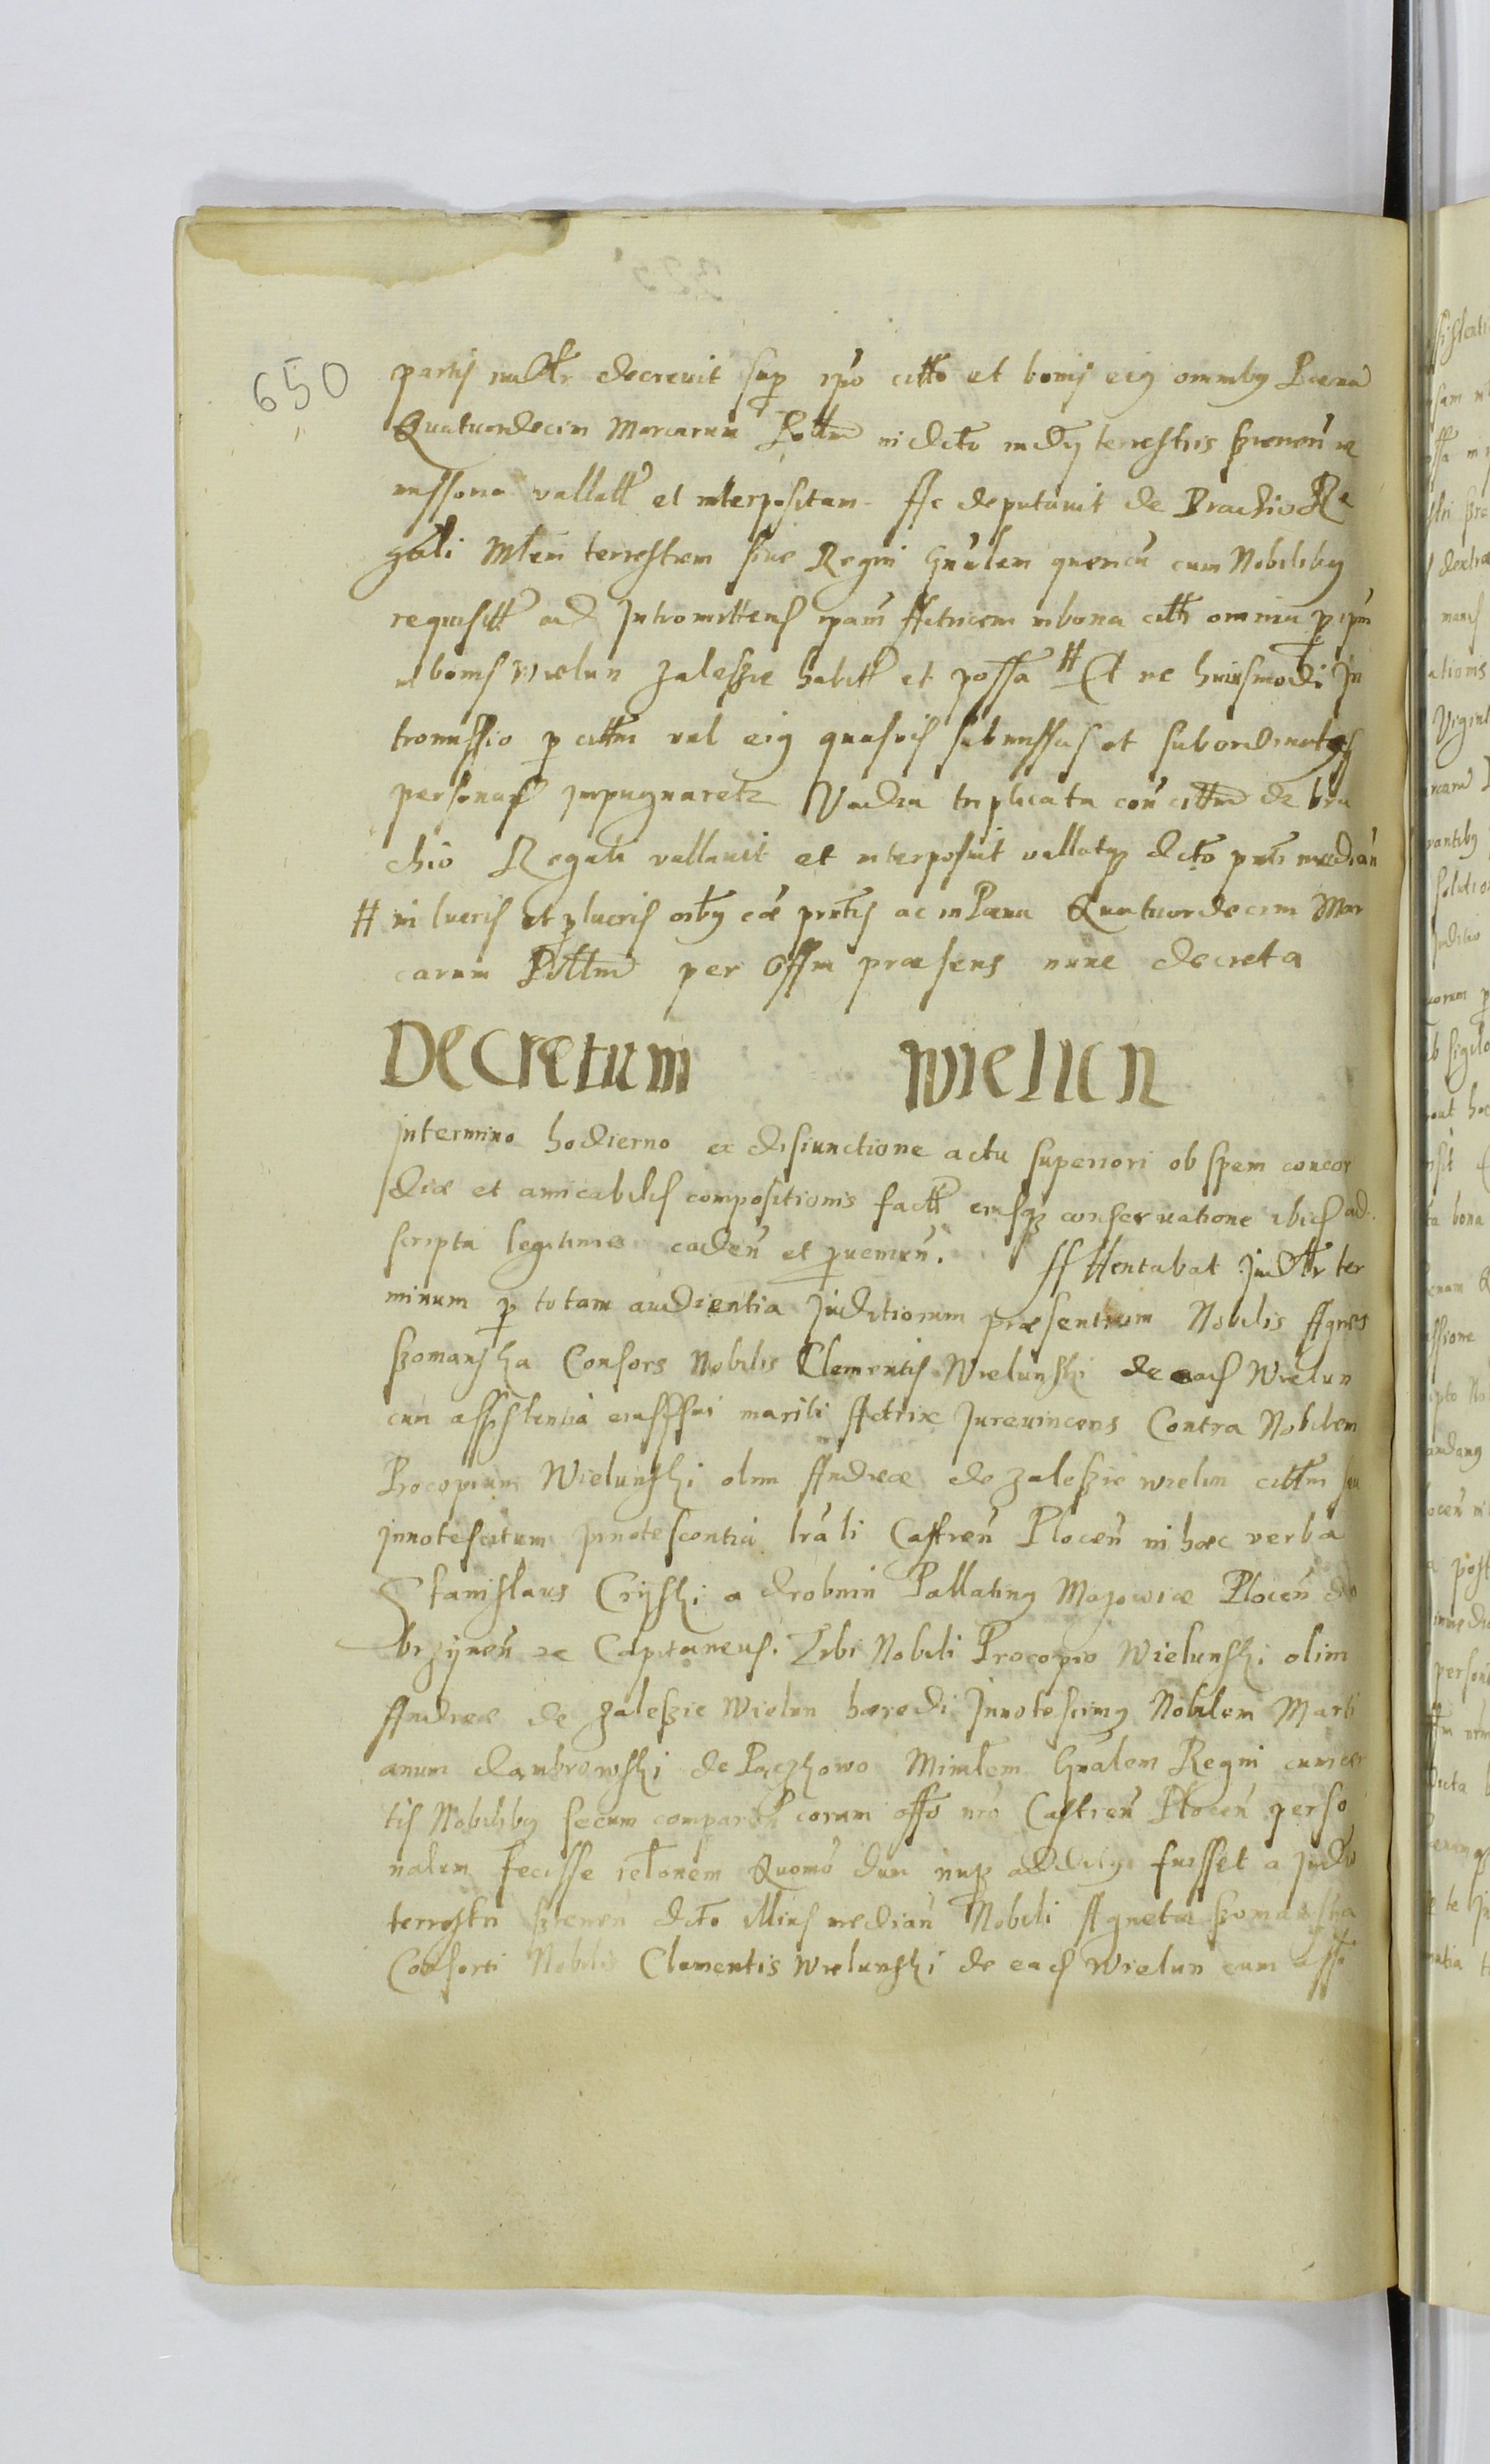 650
partis iudtr decrevit sup ipo citto et bonis eiq omnibq Poena
Quatuordecim Marcarum Polltm in dcto iudy terrestris Szrenen re
missoria vallatt et interpositam Ac deputavit de Brachio Re
gali Mlem terrestrem sive Regni Gnalem quencu cum Nobilibq
requisitt ad Intromittens ipam Actricem in bona citti omnia p ipm
in bonis Wielun Zaleszie habitt et possa # Et ne huiusmodi In
tromissio p cittm vel eiq quasvis submissas et subordinatas
personas impugnaretr Vadia triplicata con cittm de bra
chio Regali vallavit et interposuit vallatqz dcto pnti median
# in lucris et p lucris oibq cae pntis ac in Poena Quatuordecim Mar
carum Polltm per Offm praesens nunc decreta
Decretum Wielun
In termino hodierno ex disiunctione actu superiori ob spem concor
diae et amicabilis compositionis factt eiusqz conservatione ibid ad
scripta legitime caden et pvenien. Attentabat Judtr ter
minum p totam audientia Juditiorum praesentium Nobilis Agnes
Szomanska Consors Nobilis Clementis Wielunski de ead Wielun
cum assistentia eiusd sui mariti Actrix Jurevincens Contra Nobilem
Procopium Wielunski olim Andreae de Zaleszie Wielun cittm seu
Innotescitum Innotescentia lrali Castren Plocen in haec verba
Stanislaus Cryski a Drobnin Pallatinq Mazowiae Plocen Do
brzynen zc Capitaneus. Tibi Nobili Procopio Wielunski olim
Andreae de Zaleszie Wielun haeredi Innotescimq Nobilem Marti
anum Dambrowski de Paczkowo Minlem Gnalem Regni cum cer
tis Nobilibq secum comparen coram offo nro Castren Plocen perso
nalem fecisse reltonem Quomo dum nup additq fuisset a Judo
terrestri Szrenen dcto illius median Nobili Agnetae Szomanska
Consorti Nobilis Clementis Wielunski de ead Wielun cum asst